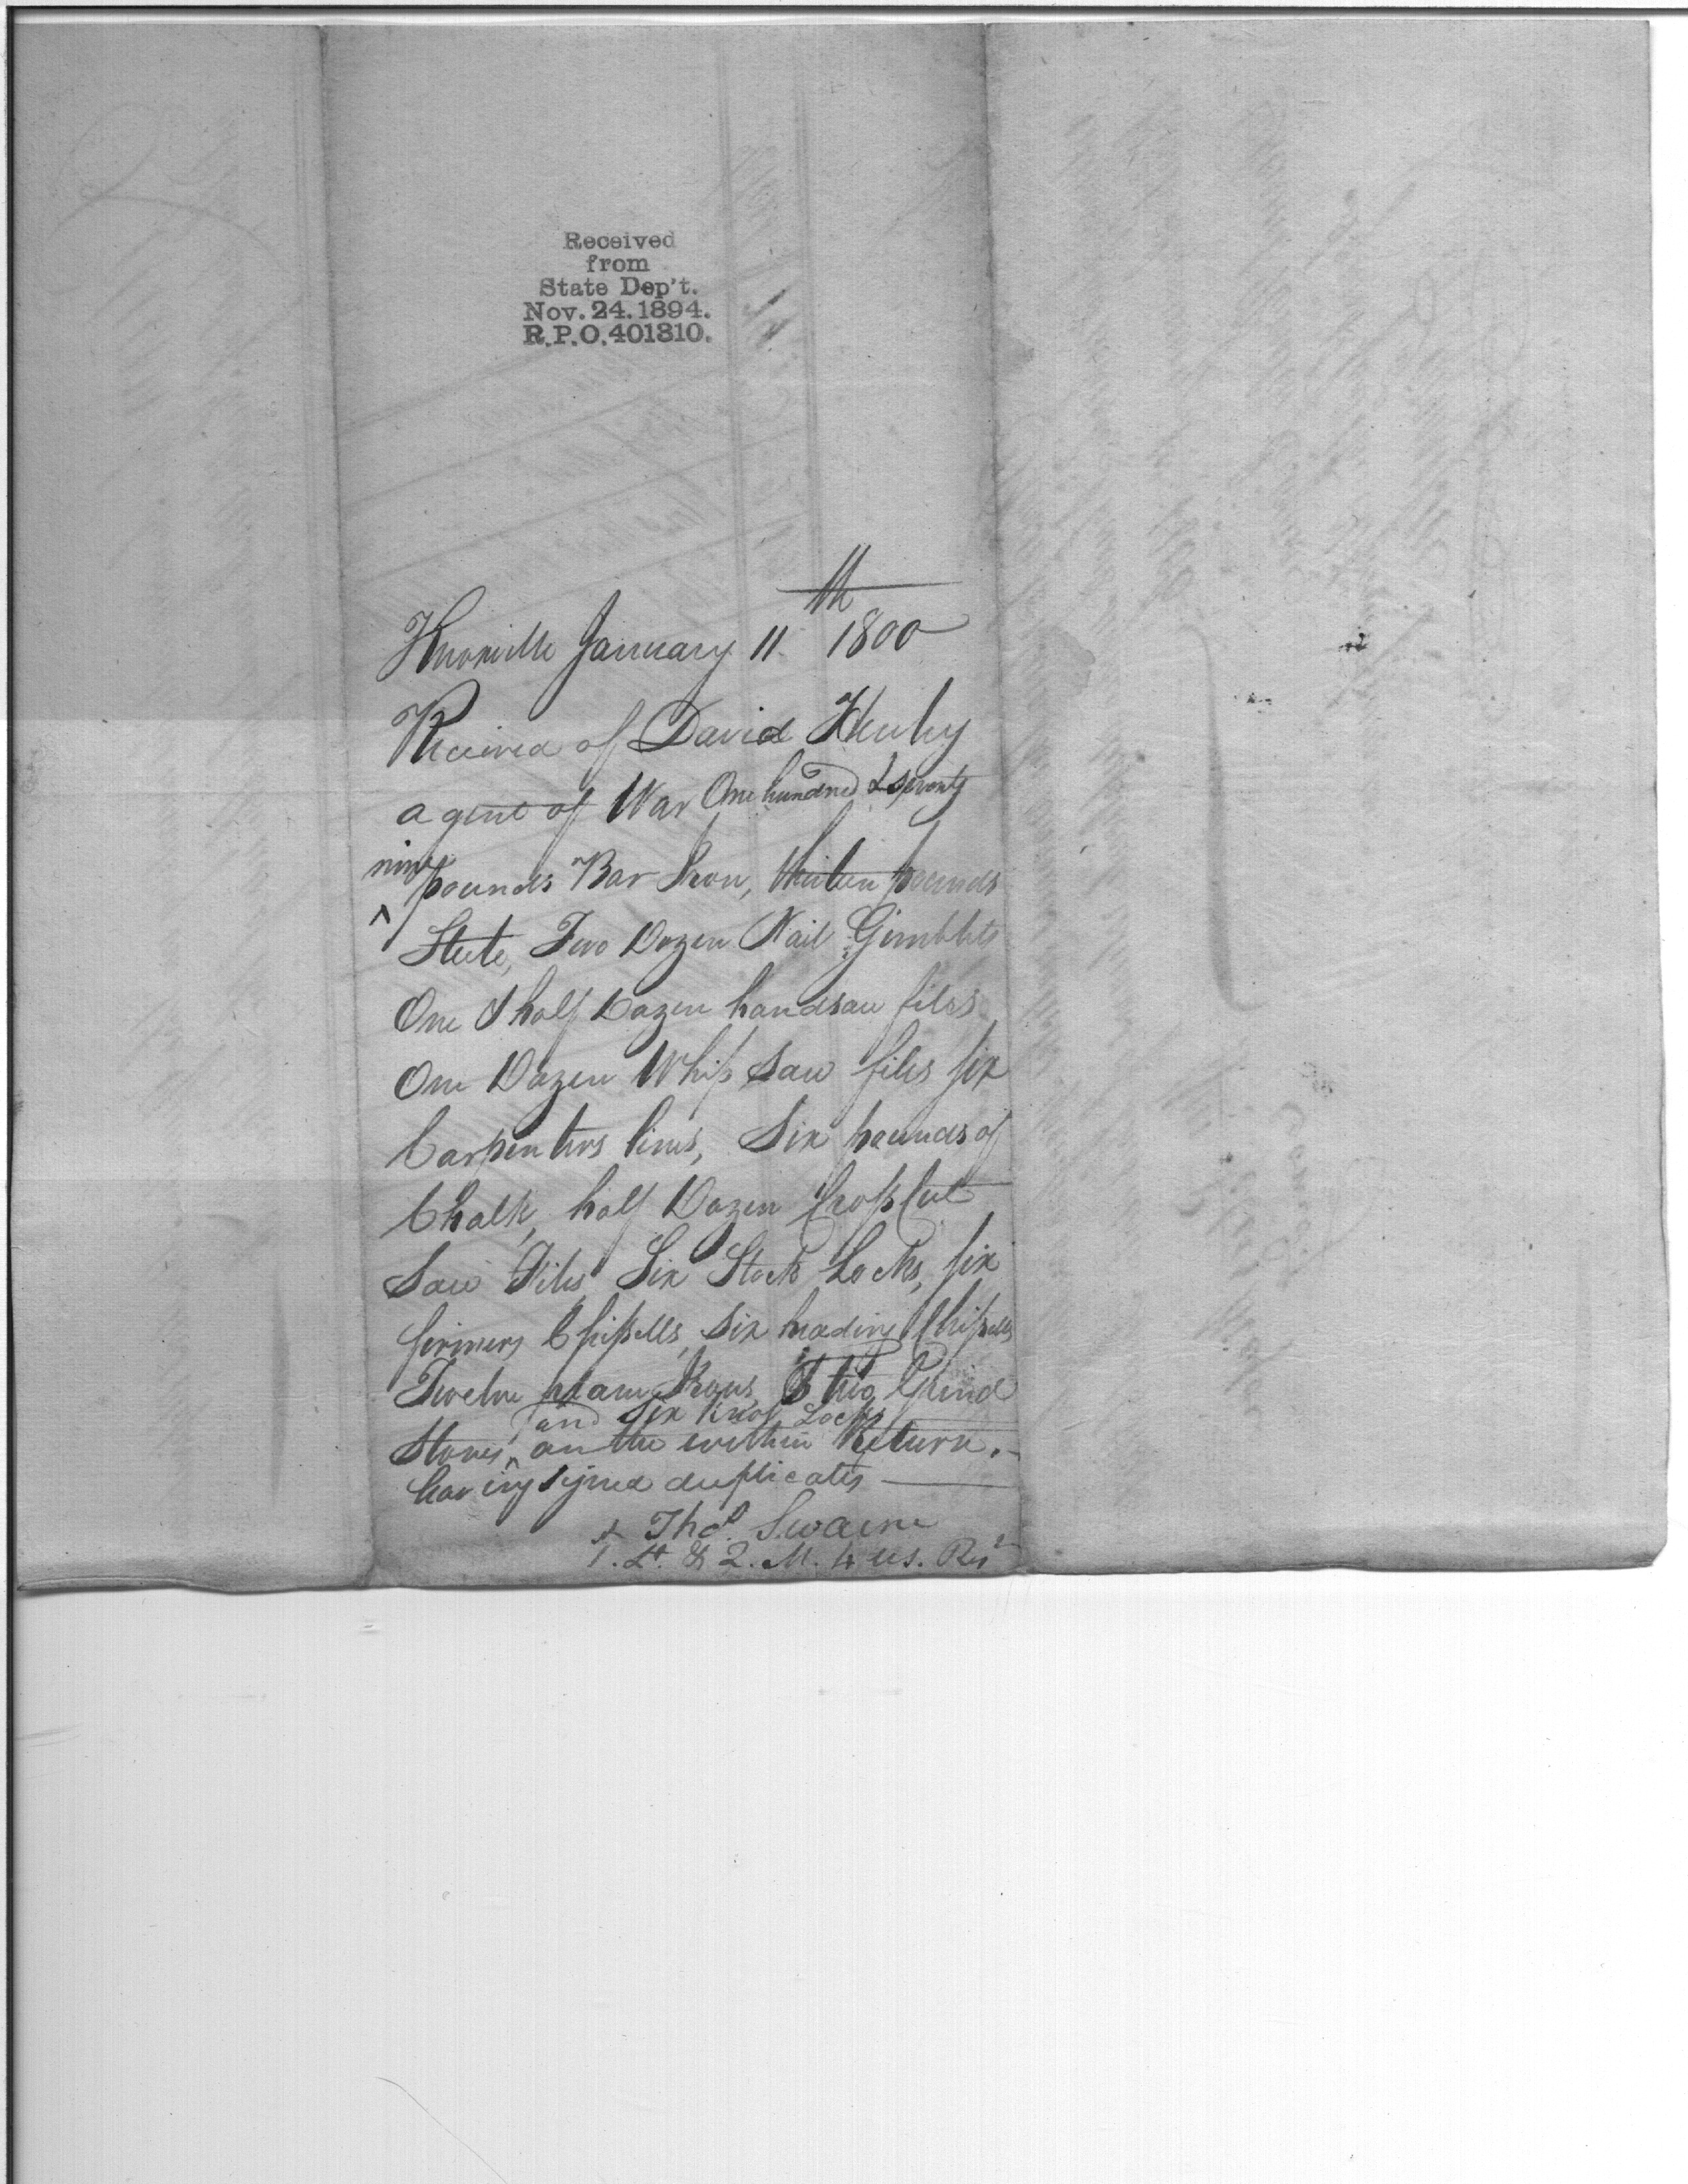 Received
from
State Dep't.
Nov. 24. 1894.
R.P.O. 401310.
Knoxville January 11th 1800
Received of David Henley
agent of War One hundred & seventy
nine
^ pounds Bar Iron, thirteen pounds
Steele, Two Dozen Nail Gimblets
One & half Dozen handsaw files
One Dozen Whip Saw files six
Carpenters lines, Six pounds of
Chalk, half Dozen Cross Cut
Saw Files, Six Stock Locks, six
firmers Chissells, six heading Chissells
Twelve plane Irons, Two Grind
and Six Locks
Stones ^ on the within Return.
having signed duplicates
Thos. Swaine
1. Lt. & Q. M. 4 U.S. Regt